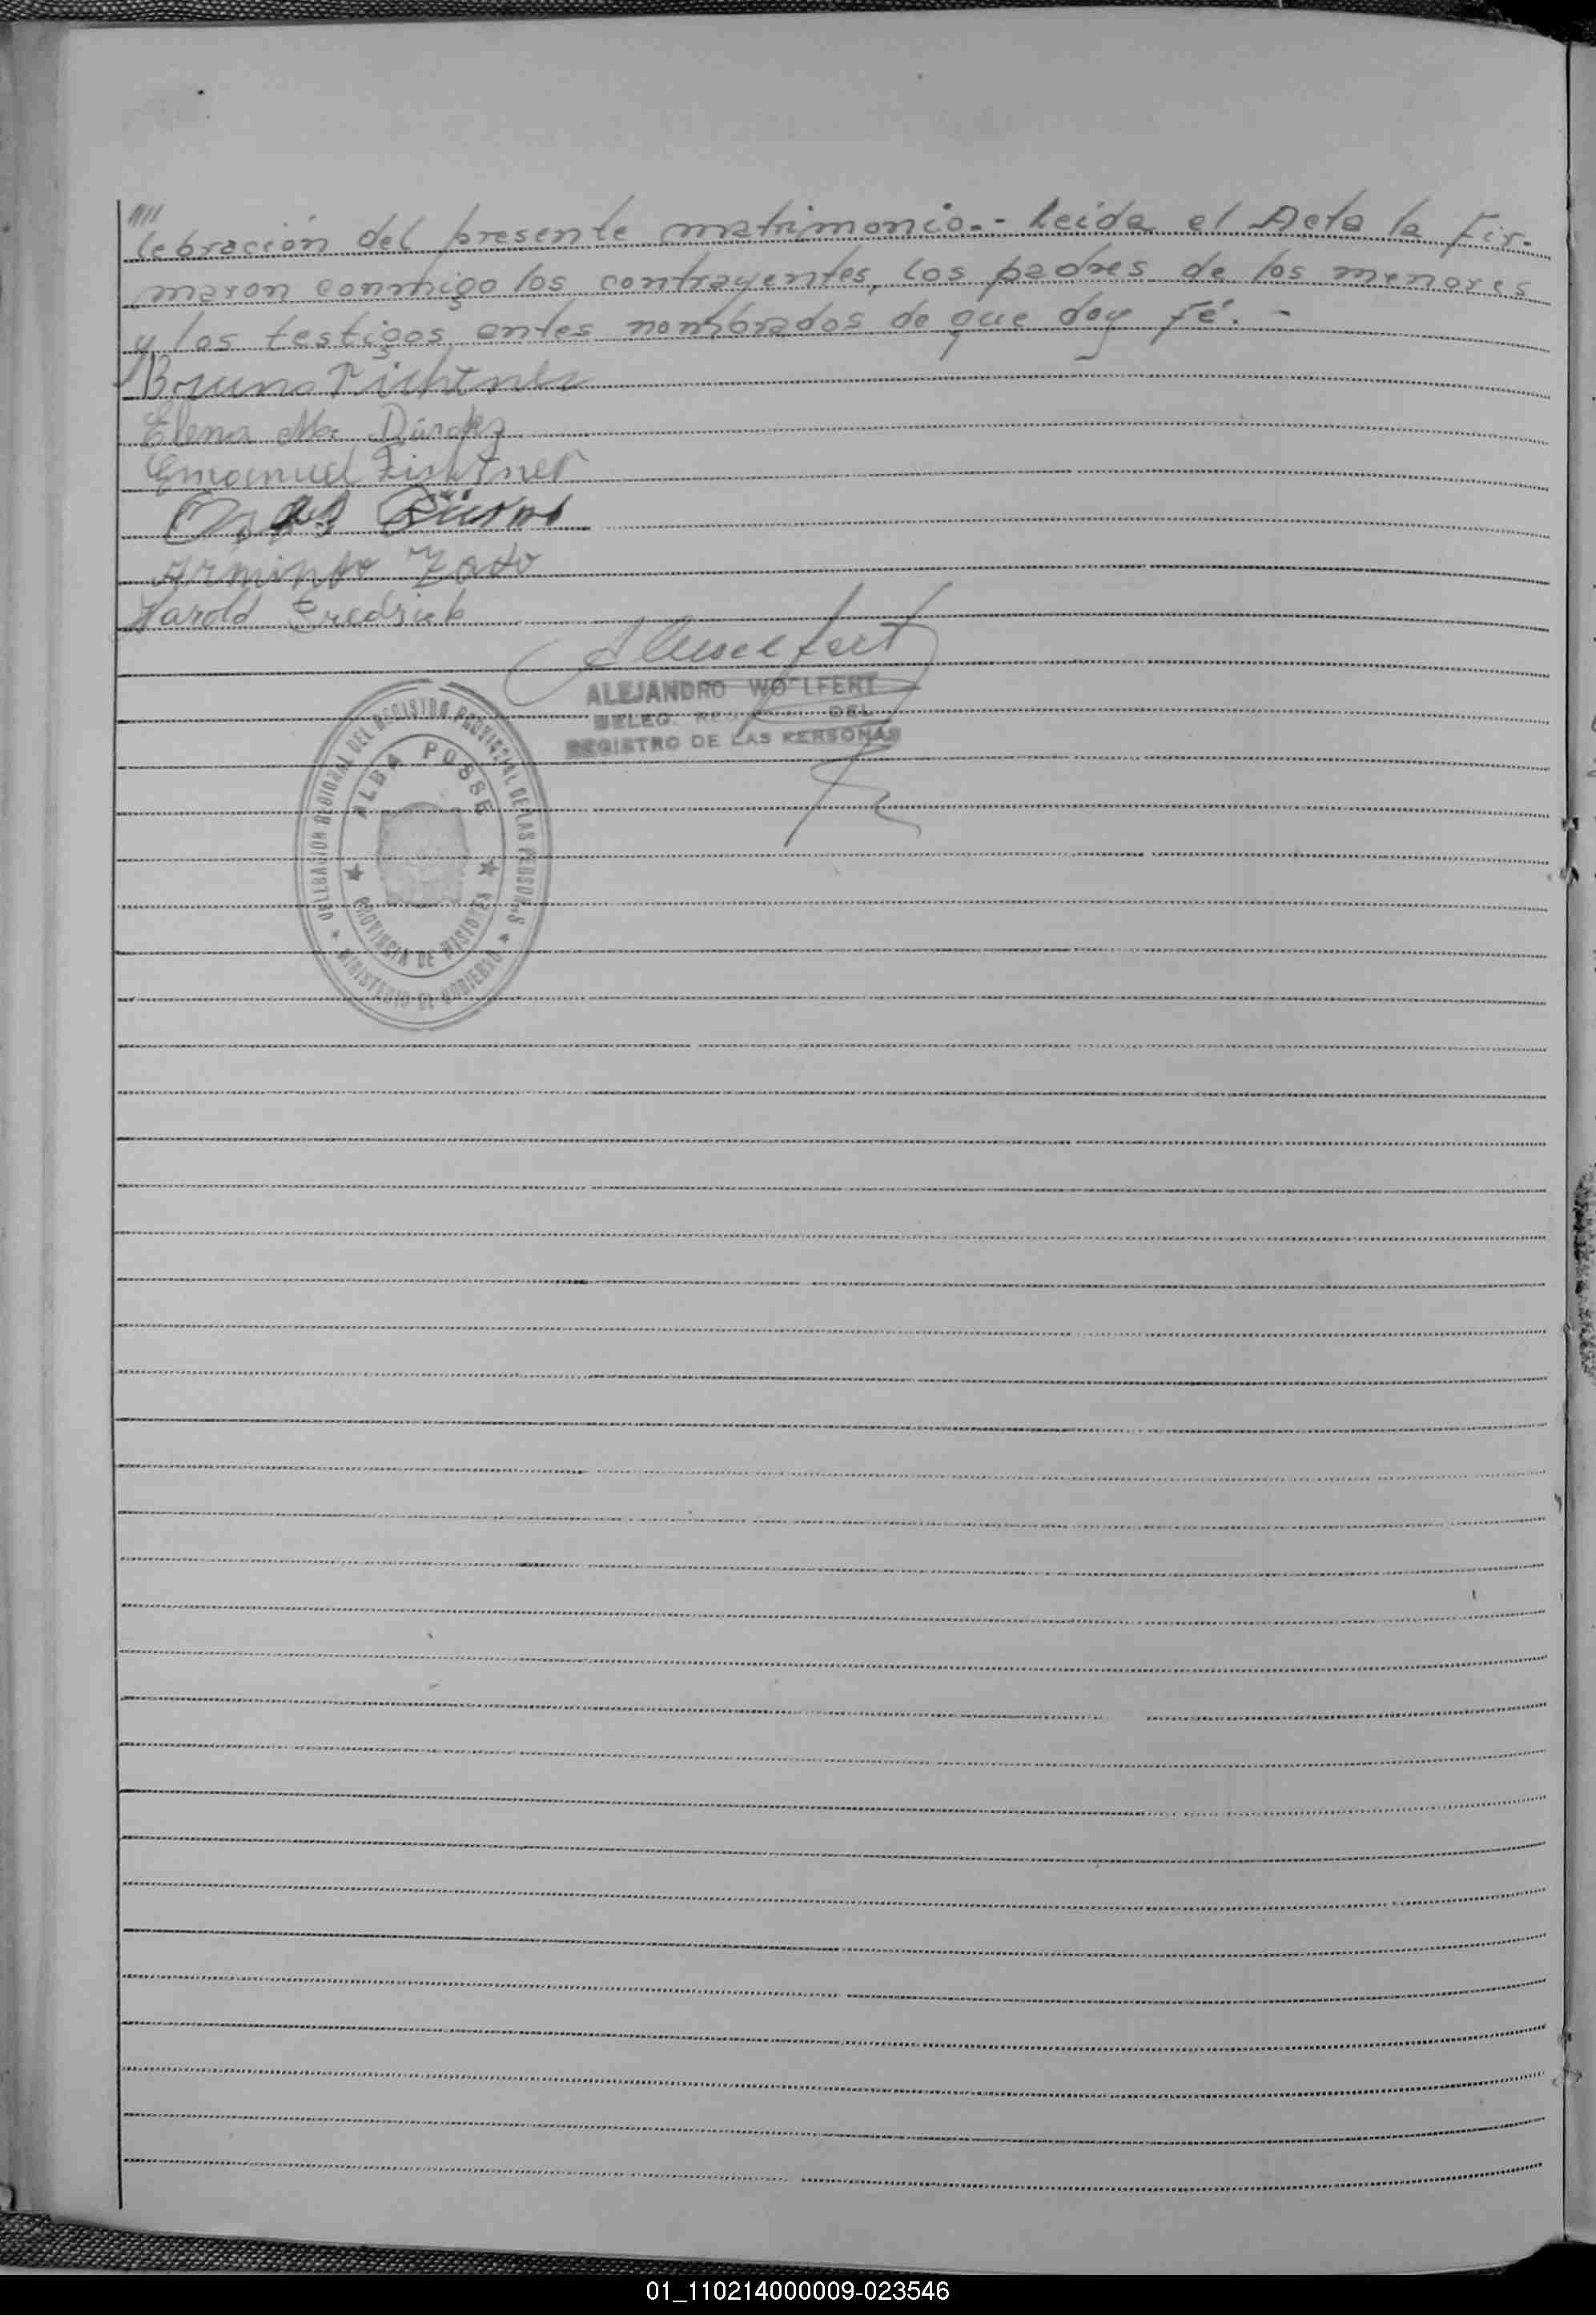 ////
lebración del presente matrimonio.- Leída el Acta la Fir-
maron conmigo los contrayentes, los padres de los menores
y los testigos antes nombrados de que doy fé. -
Bruno Fichtner
Elena M.
Emanuel Fichtner
Armindo
Harold Fredrich
ALEJANDRO WOLFERT
DELEG. DEL
REGISTRO DE LAS PERSONAS
DELEGACION REGIONAL DEL REGISTRO PROVINCIAL DE LAS PERSONAS
ALBA POSSE
PROVINCIA DE MISIONES
MINISTERIO DE GOBIERNO
01_110214000009-023546